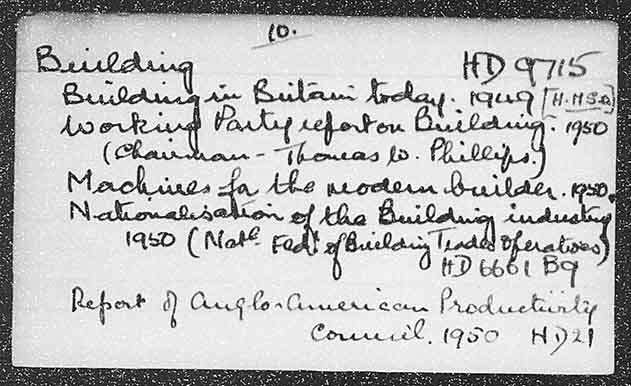 10.
Building HD 9715
Building in Britain today. 1949 [H.M.S.O]
Working Party report on Building. 1950
(Chairman - Thomas W. Phillips.)
Machines for the modern builder. 1950.
Nationalisation of the Building industry
1950 (Natl. Fedn. of Building Trades Operatives)
HD 6661 B9
Report of Anglo-American Productivity
Council. 1950 HD21